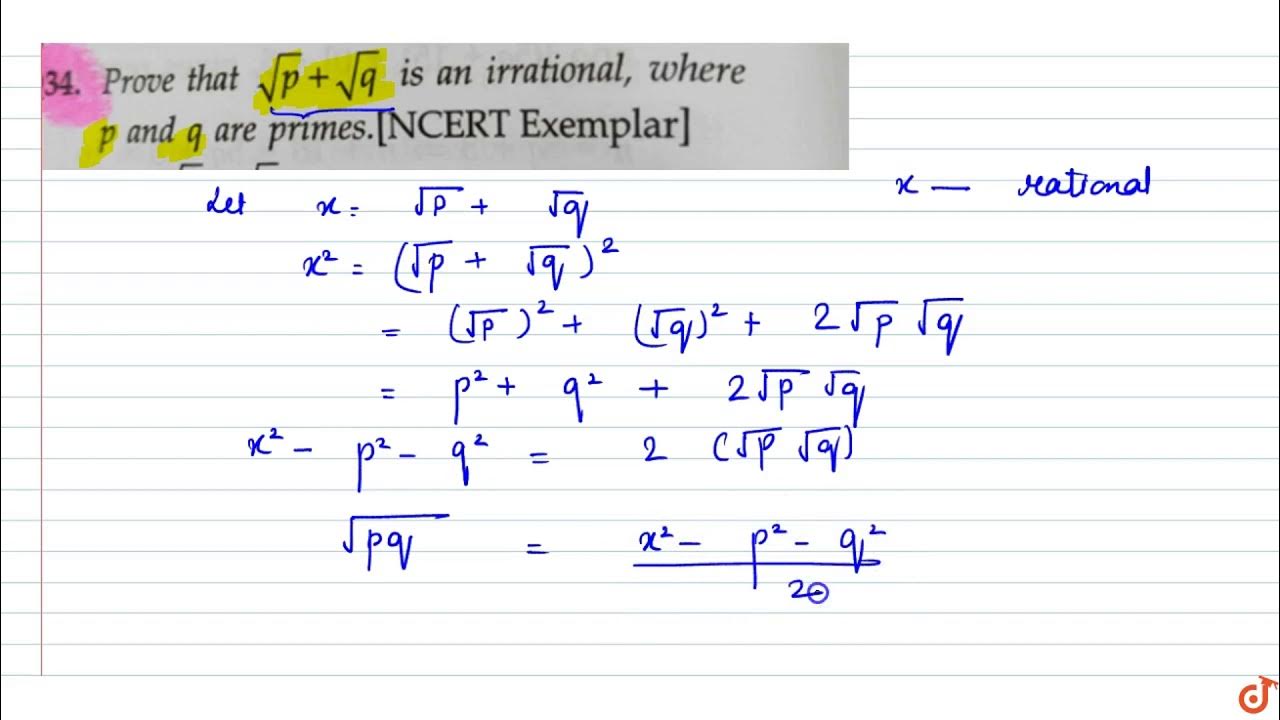 34. Prove that √p + √q is an irrational, where
p and q are primes.[NCERT Exemplar]
Let x = √p + √q x — rational
x² = (√p + √q)²
= (√p)² + (√q)² + 2√p √q
= p² + q² + 2√p √q
x² - p² - q² = 2 (√p √q)
√pq = x² - p² - q²
2